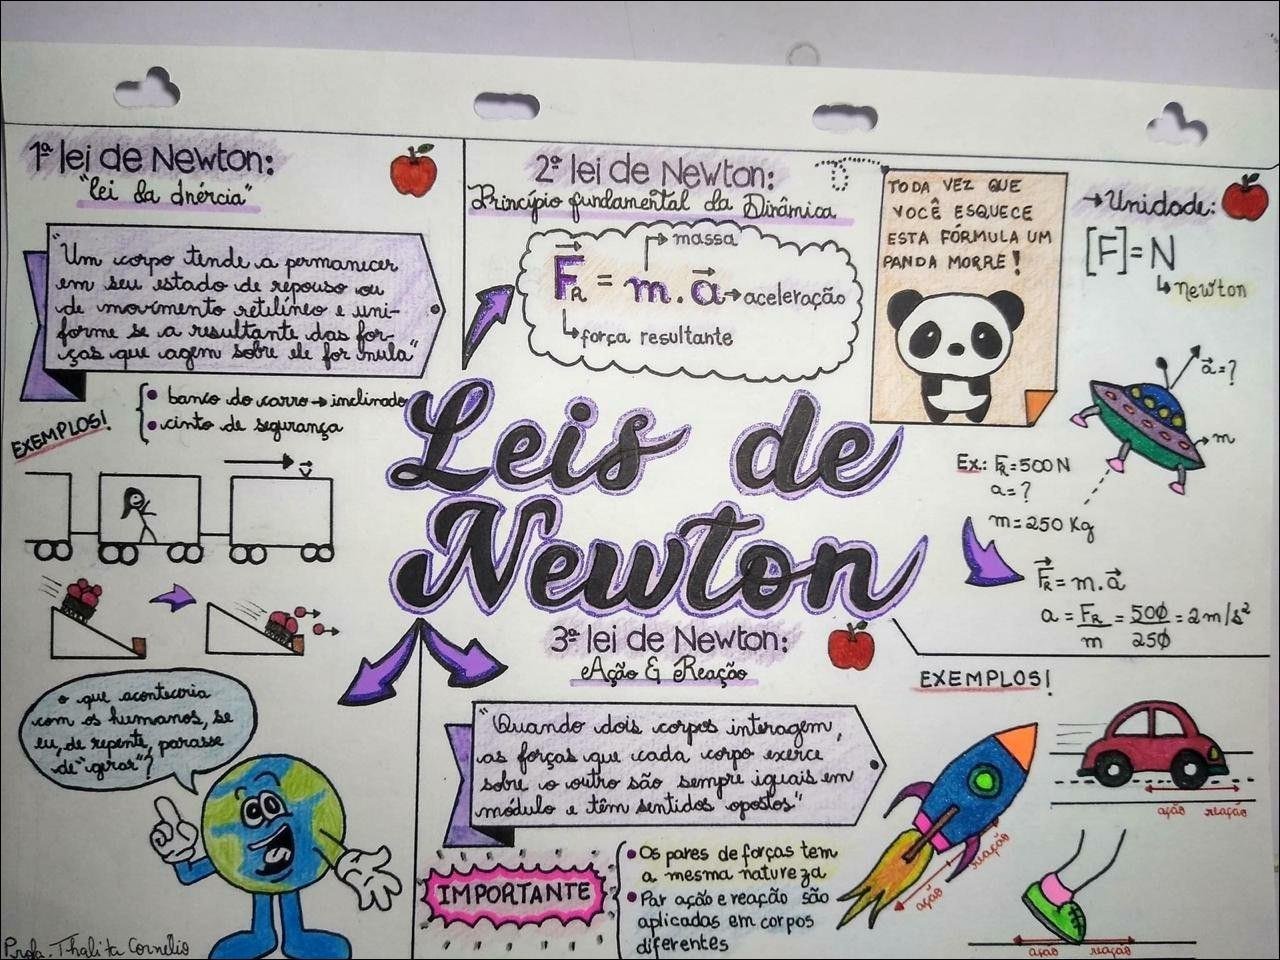 1ª lei de Newton:
"lei da Inércia"
"Um corpo tende a permanecer
em seu estado de repouso ou
de movimento retilíneo e uni-
forme se a resultante das for-
ças que agem sobre ele for nula"
EXEMPLOS!
• banco do carro → inclinado
• cinto de segurança
v
o que aconteceria
com os humanos, se
eu, de repente, parasse
de "girar"?
Profa. Thalita Cornelio
2ª lei de Newton:
Princípio fundamental da Dinâmica
massa
F_R = m . a → aceleração
força resultante
TODA VEZ QUE
VOCÊ ESQUECE
ESTA FÓRMULA UM
PANDA MORRE!
→ Unidade:
[F] = N
newton
a = ?
m
Ex.: F_R = 500 N
a = ?
m = 250 Kg
F_R = m . a
a = F_R / m = 500 / 250 = 2 m/s²
Leis de
Newton
3ª lei de Newton:
Ação & Reação
"Quando dois corpos interagem,
as forças que cada corpo exerce
sobre o outro são sempre iguais em
módulo e têm sentidos opostos"
IMPORTANTE
• Os pares de forças tem
a mesma natureza
• Par ação e reação são
aplicadas em corpos
diferentes
EXEMPLOS!
ação reação
ação reação
ação reação